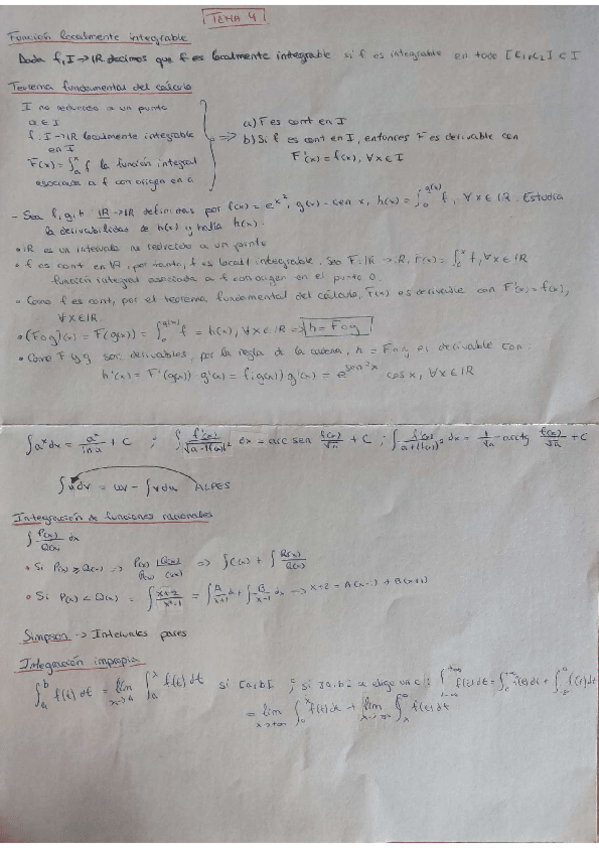 TEMA 4
Función localmente integrable
Dada f: I→IR decimos que f es localmente integrable si f es integrable en todo [c₁,c₂] ⊂ I
Teorema fundamental del cálculo
I no reducido a un punto
a ∈ I
f: I→IR localmente integrable
en I
F(x) = ∫ₐˣ f la función integral
asociada a f con origen en a
⇒ a) F es cont en I
b) Si f es cont en I, entonces F es derivable con
F'(x) = f(x), ∀x∈I
- Sea f, g, h: IR→IR definimos por f(x) = e^x², g(x) = sen x, h(x) = ∫₀^g(x) f, ∀x∈IR. Estudia
la derivabilidad de h(x) y halla h'(x).
• IR es un intervalo no reducido a un punto
• f es cont en IR, por tanto, f es localt integrable. Sea F: IR→IR, F(x) = ∫₀ˣ f, ∀x∈IR
función integral asociada a f con origen en el punto 0.
• Como f es cont, por el teorema fundamental del cálculo, F(x) es derivable con F'(x) = f(x),
∀x∈IR.
• (F∘g)(x) = F(g(x)) = ∫₀^g(x) f = h(x), ∀x∈IR ⇒ h = F∘g
• Como F y g son derivables, por la regla de la cadena, h = F∘g es derivable con:
h'(x) = F'(g(x)) g'(x) = f(g(x)) g'(x) = e^sen²x cos x, ∀x∈IR
∫aˣdx = aˣ/ln a + C ; ∫ f'(x)/√(a-(f(x))²) dx = arc sen f(x)/√a + C ; ∫ f'(x)/(a+(f(x))²) dx = 1/√a · arctg f(x)/√a + C
∫udv = uv - ∫vdu ALPES
Integración de funciones racionales
∫ P(x)/Q(x) dx
• Si P(x) ≥ Q(x) ⇒ P(x) |Q(x) ⇒ ∫C(x) + ∫ R(x)/Q(x)
R(x) C(x)
• Si P(x) < Q(x) = ∫ (x+2)/(x²-1) = ∫ A/(x+1) dx + ∫ B/(x-1) dx → x+2 = A(x-1) + B(x+1)
Simpson → Intervalos pares
Integración impropia
∫ₐᵇ f(t) dt = lim ∫ₐˣ f(t) dt si [a,b[ ; si ]a,b[ elige un c: ∫₋∞^+∞ f(t)dt =
= lim x→+∞ ∫₀ˣ f(t)dt + lim x→-∞ ∫ₓ⁰ f(t)dt